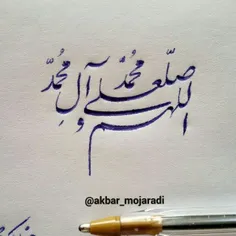 اللهم صلّ علی محمُّد و آلِ محمُّد
@akbar_mojaradi